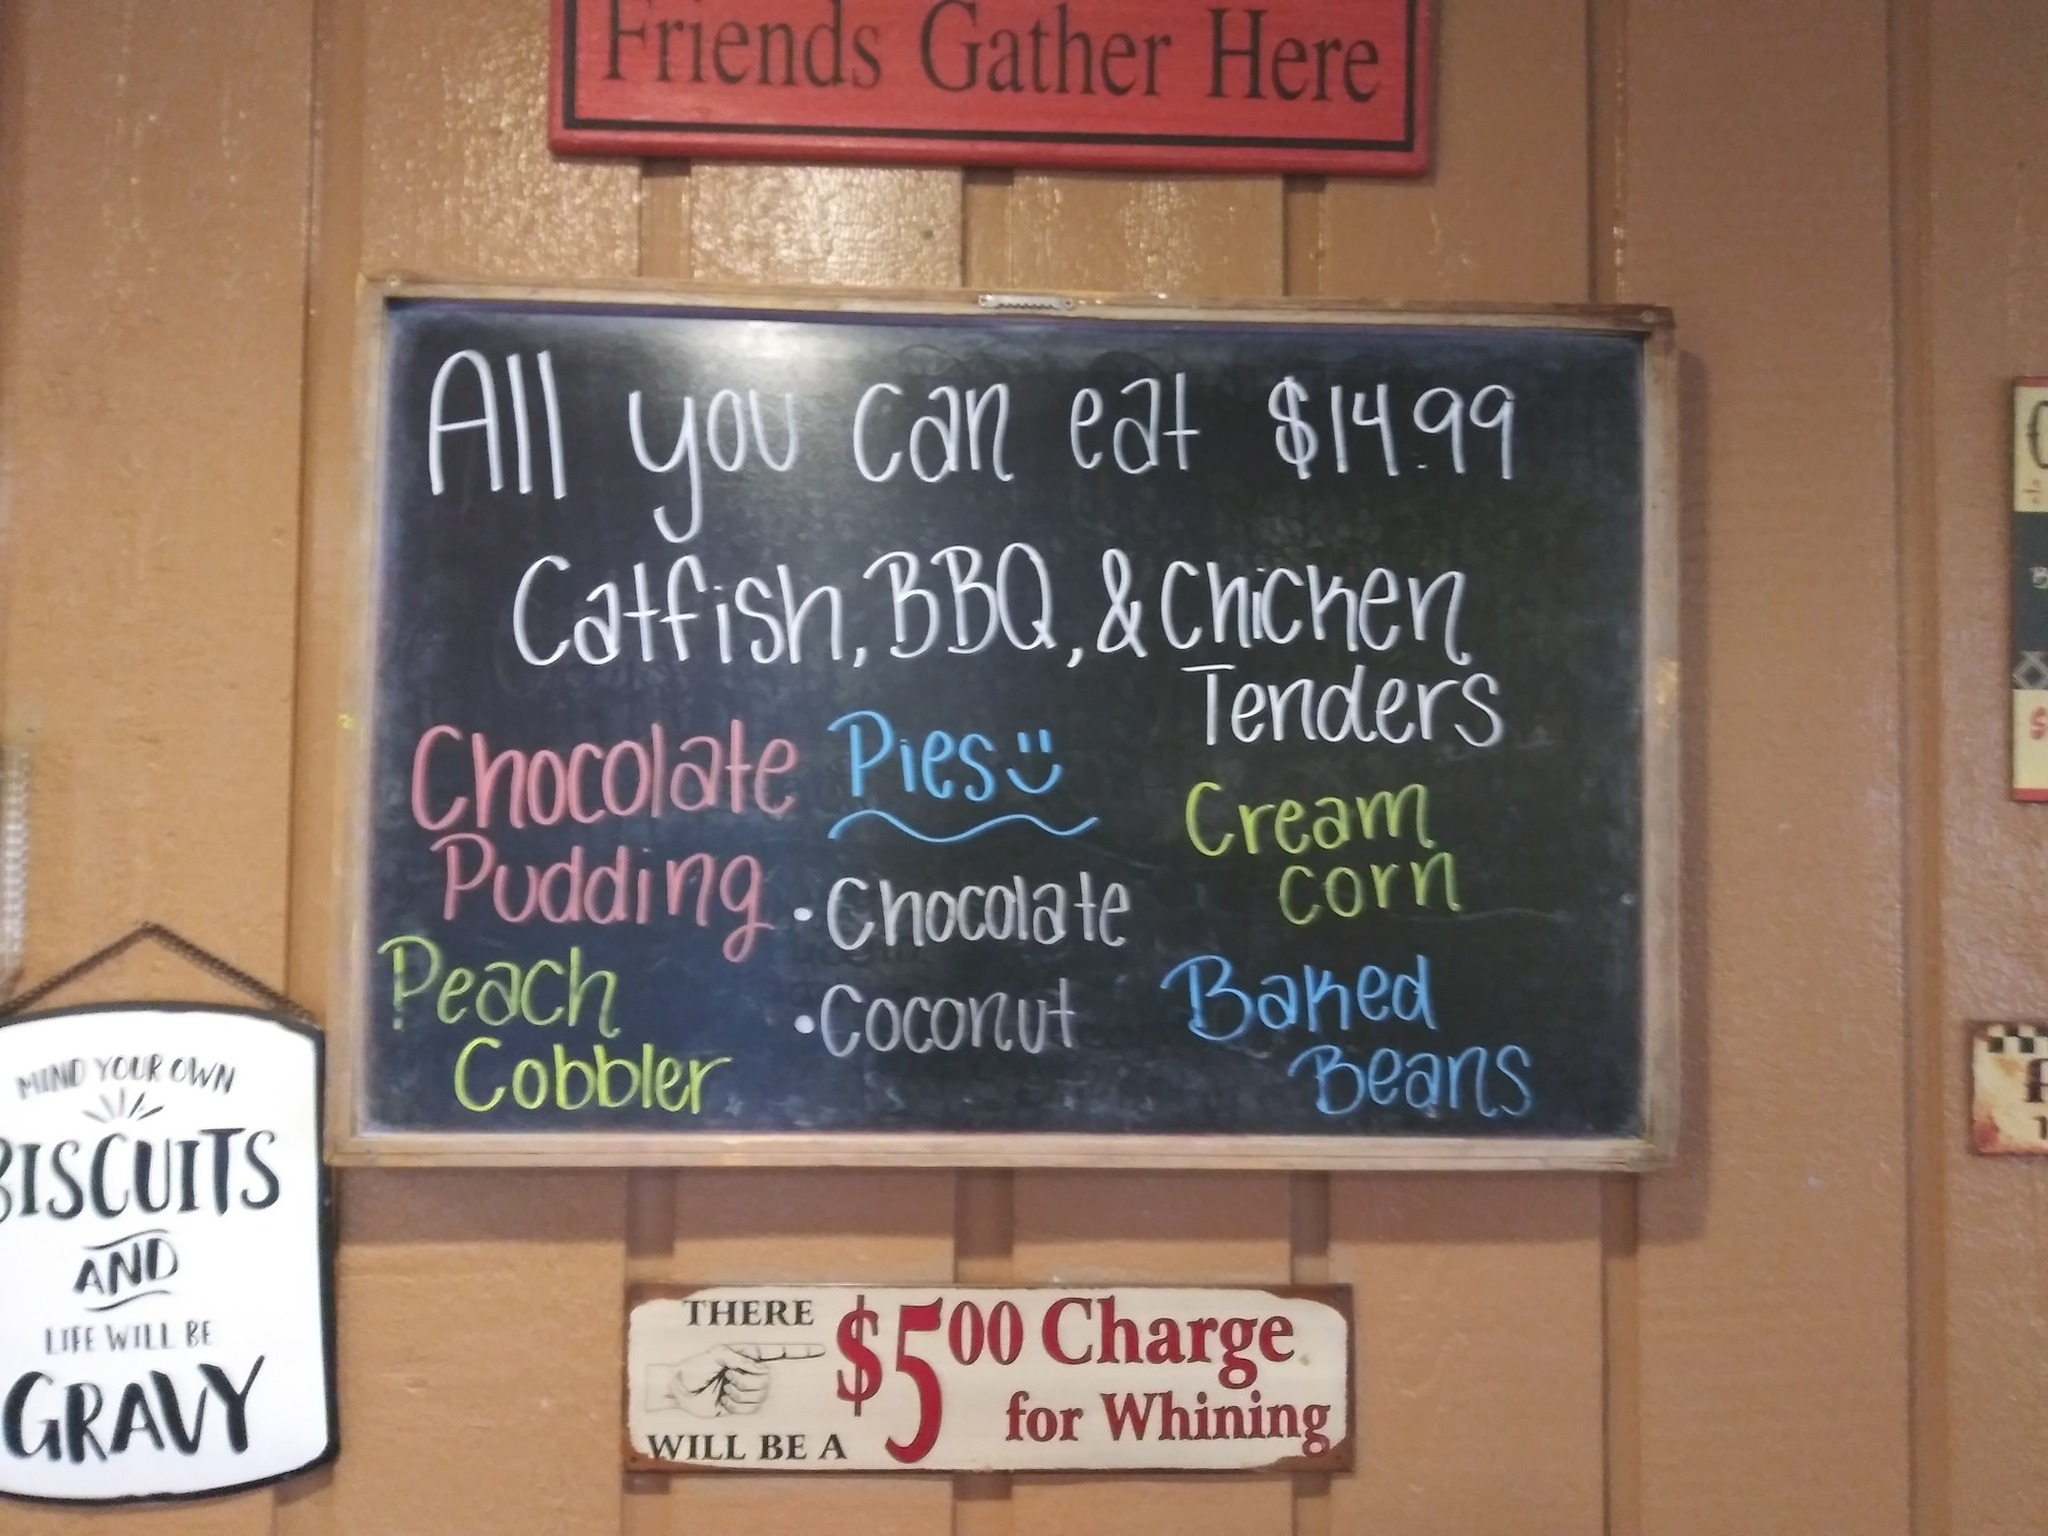 Friends Gather Here
All you can eat $14.99
Catfish, BBQ, & Chicken
Tenders
Chocolate
Pudding
Peach
Cobbler
Pies
• Chocolate
• Coconut
Cream
corn
Baked
Beans
MIND YOUR OWN
BISCUITS
AND
LIFE WILL BE
GRAVY
THERE
WILL BE A
$5.00 Charge
for Whining